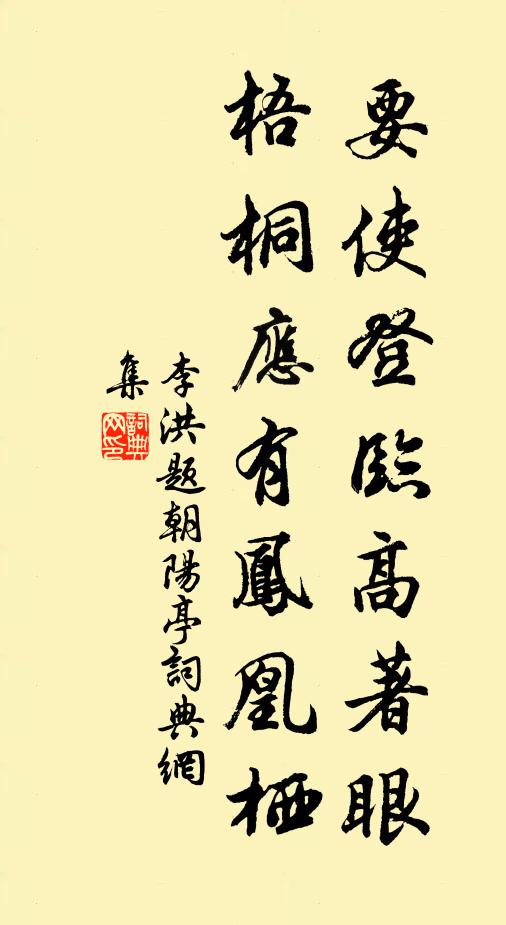 要使登臨高著眼
梧桐應有鳳凰栖
李洪题朝陽亭詞典網
集
詞典
网印